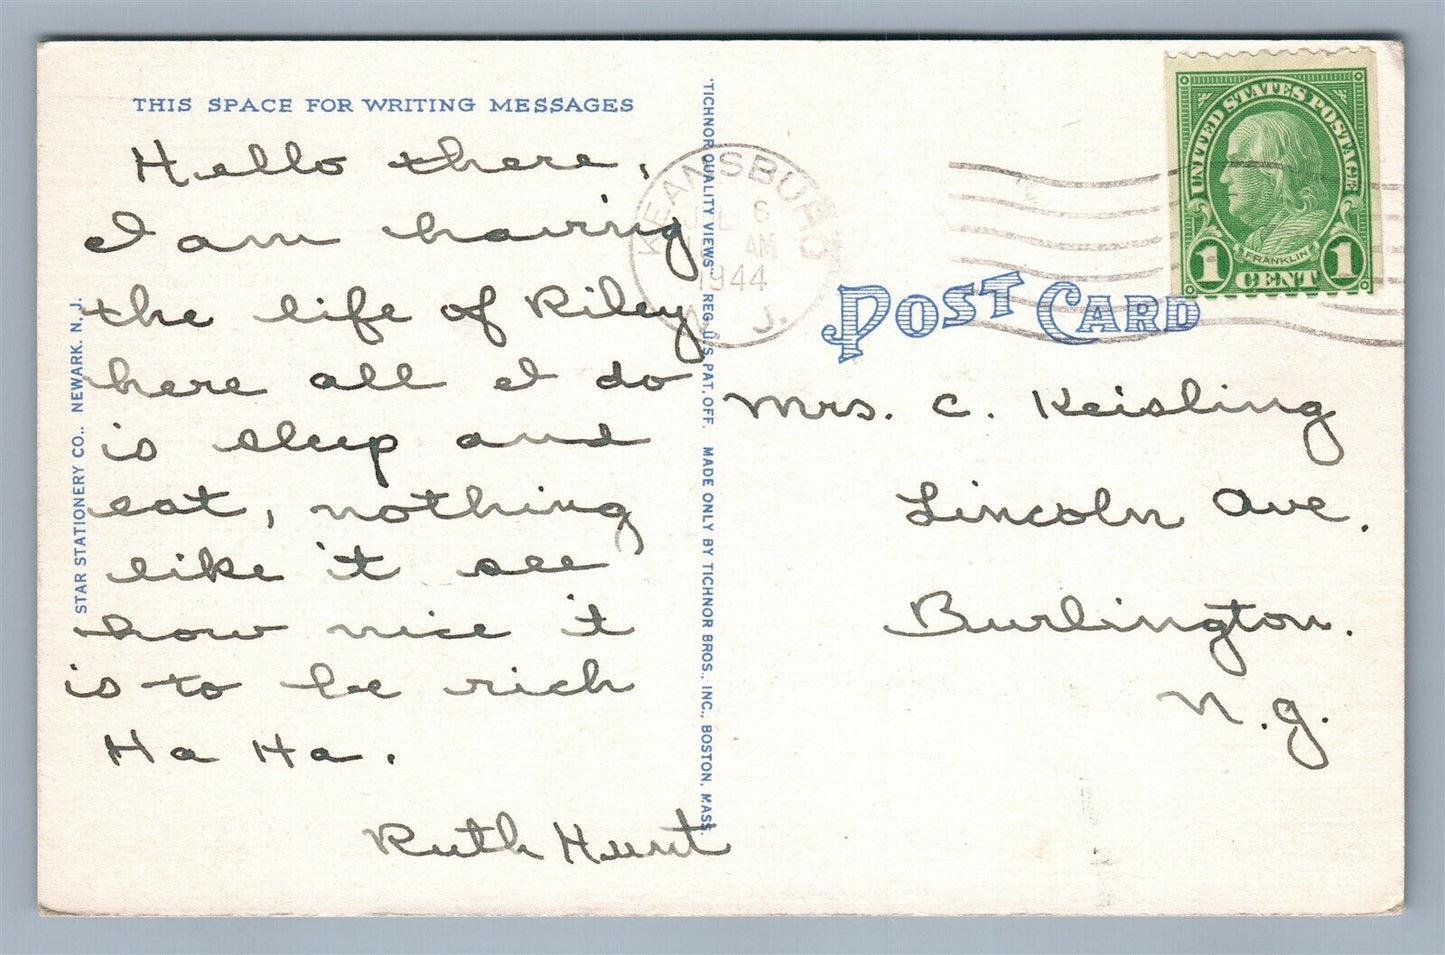 THIS SPACE FOR WRITING MESSAGES
Hello there,
I am having
the life of Riley
here all I do
is sleep and
eat, nothing
like it see
how nice it
is to be rich
Ha Ha.
Ruth Hunt
STAR STATIONERY CO., NEWARK, N. J.
"TICHNOR QUALITY VIEWS" REG. U.S. PAT. OFF. MADE ONLY BY TICHNOR BROS., INC., BOSTON, MASS.
KEANSBURG
JUL 6
AM
1944
N. J.
UNITED STATES POSTAGE
FRANKLIN
1 CENT 1
POST CARD
Mrs. C. Keisling
Lincoln Ave.
Burlington.
N.J.